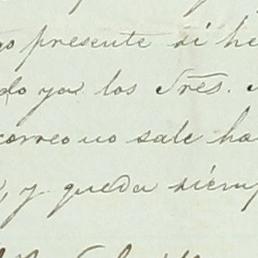 go presente si he
do ya los Sres.
correo no sale ha
, y queda siemp